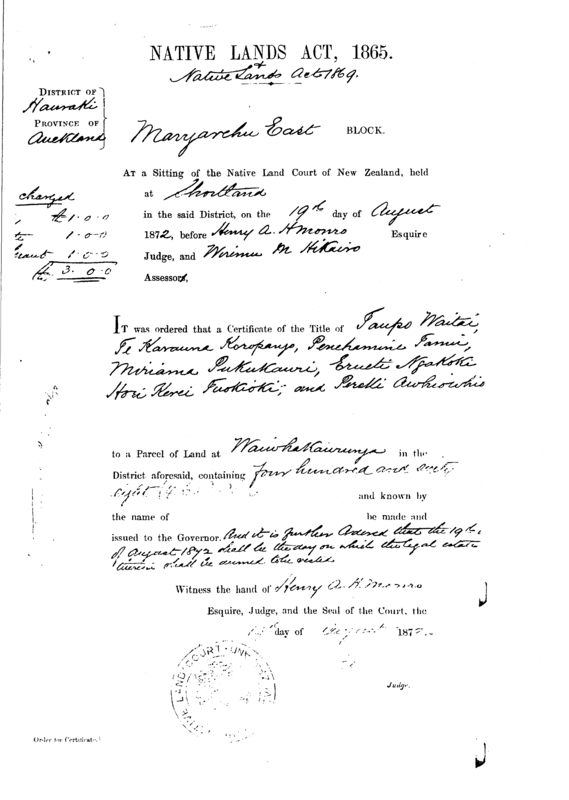 NATIVE LANDS ACT, 1865.
+
Native Lands Act 1869.
DISTRICT OF
Hauraki
PROVINCE OF
Auckland
Maryarchu East BLOCK.
AT a Sitting of the Native Land Court of New Zealand, held
at Shortland
in the said District, on the 19th day of August
1872, before Henry A. H Monro Esquire
Judge, and Wiremu M Hikairo
Assessor,
charged
£1.0.0
1.0.0
1.0.0
3.0.0
IT was ordered that a Certificate of the Title of Taupo Waitai,
Te Karauna Koropango, Penehamine Tamui,
Miriama Pukukauri, Erueti Ngakoki
Hori Kerei Tuokioki; and Pereki Awhiowhio
to a Parcel of Land at Waiwhakaurunga in the
District aforesaid, containing four hundred and sixty
eight
and known by
the name of be made and
issued to the Governor. And it is further Ordered that the 19th
of August 1872 shall be the day on which the legal estate
therein shall be deemed to be vested
Witness the hand of Henry A. H. Monro
Esquire, Judge, and the Seal of the Court, the
day of August 187
Judge.
Order for Certificate.